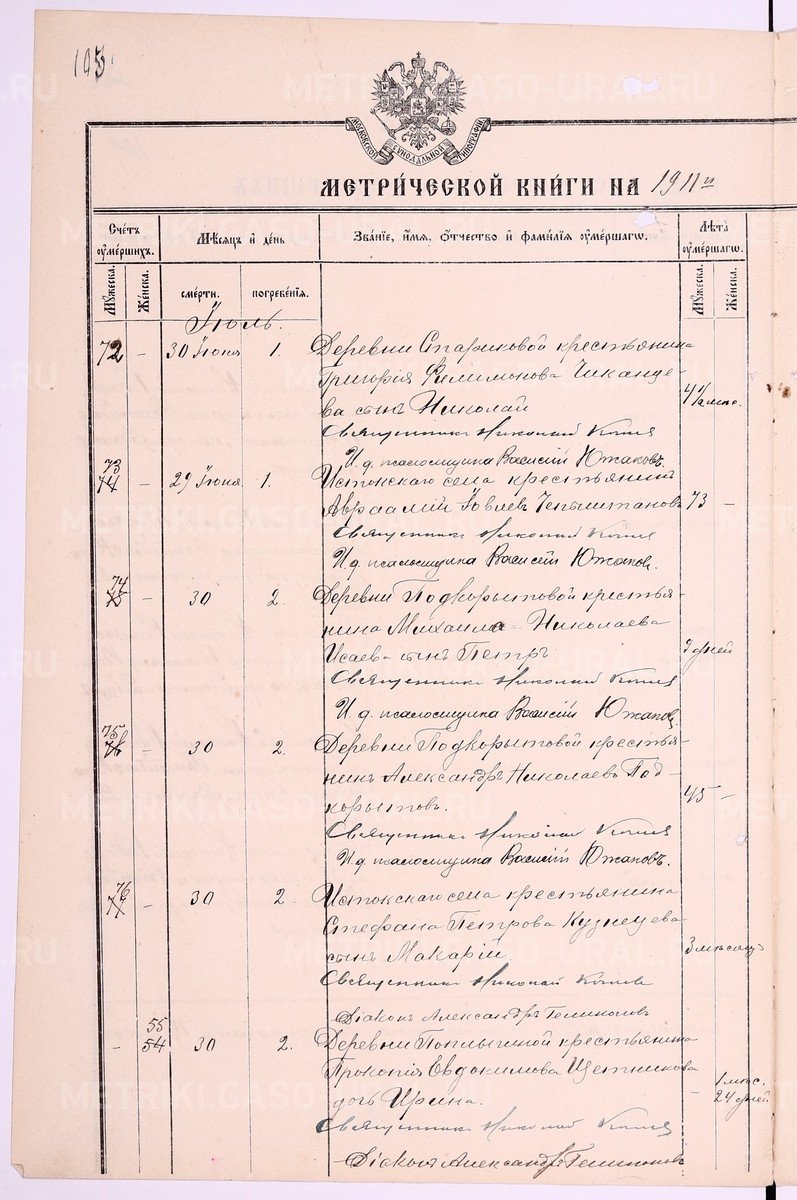 105
МОСКОВСКОЙ СѴНОДАЛЬНОЙ ТИПОГРАФІИ
МЕТРИ́ЧЕСКОЙ КНИ́ГИ НА 1911 г
Счетъ оумершихъ.
Мѣсяцъ и день
Званїе, имя, отчество и фамилїя оумершагѡ.
Лѣта оумершагѡ.
Мужеска.
Женска.
смерти.
погребенїя.
Мужеска.
Женска.
Іюль.
72 - 30 Іюня 1. Деревни Стариковой крестьянина
Григорія Филимонова Чиканце-
ва сынъ Николай 4 1/2 мѣс.
Священникъ Николай
И. д. псаломщика Василій Южаковъ.
73
74 - 29 Іюня 1. Истокскаго села крестьянинъ
Авраамій Іовлевъ 73 -
Священникъ Николай
И. д. псаломщика Василій Южаков.
74
- 30 2. Деревни Подкорытовой крестья-
нина Михаила Николаева
Исаева сынъ Петръ 9 дней
Священникъ Николай
И. д. псаломщика Василій Южаков.
75
76 - 30 2. Деревни Подкорытовой крестья-
нинъ Александръ Николаевъ Под-
корытовъ. 45 -
Священникъ Николай
И. д. псаломщика Василій Южаковъ.
76
77 - 30 2. Истокскаго села крестьянина
Стефана Петрова Кузнецева
сынъ Макарій 3 мѣсяц
Священникъ Николай
Діаконъ Александръ
55
- 54 30 2. Деревни Поплыгиной крестьянина
Прокопія Евдокимова Щетникова
дочь Ирина. - 1 мѣс. 24 дней
Священникъ Николай
Діаконъ Александръ
METRIKI.GASO-URAL.RU